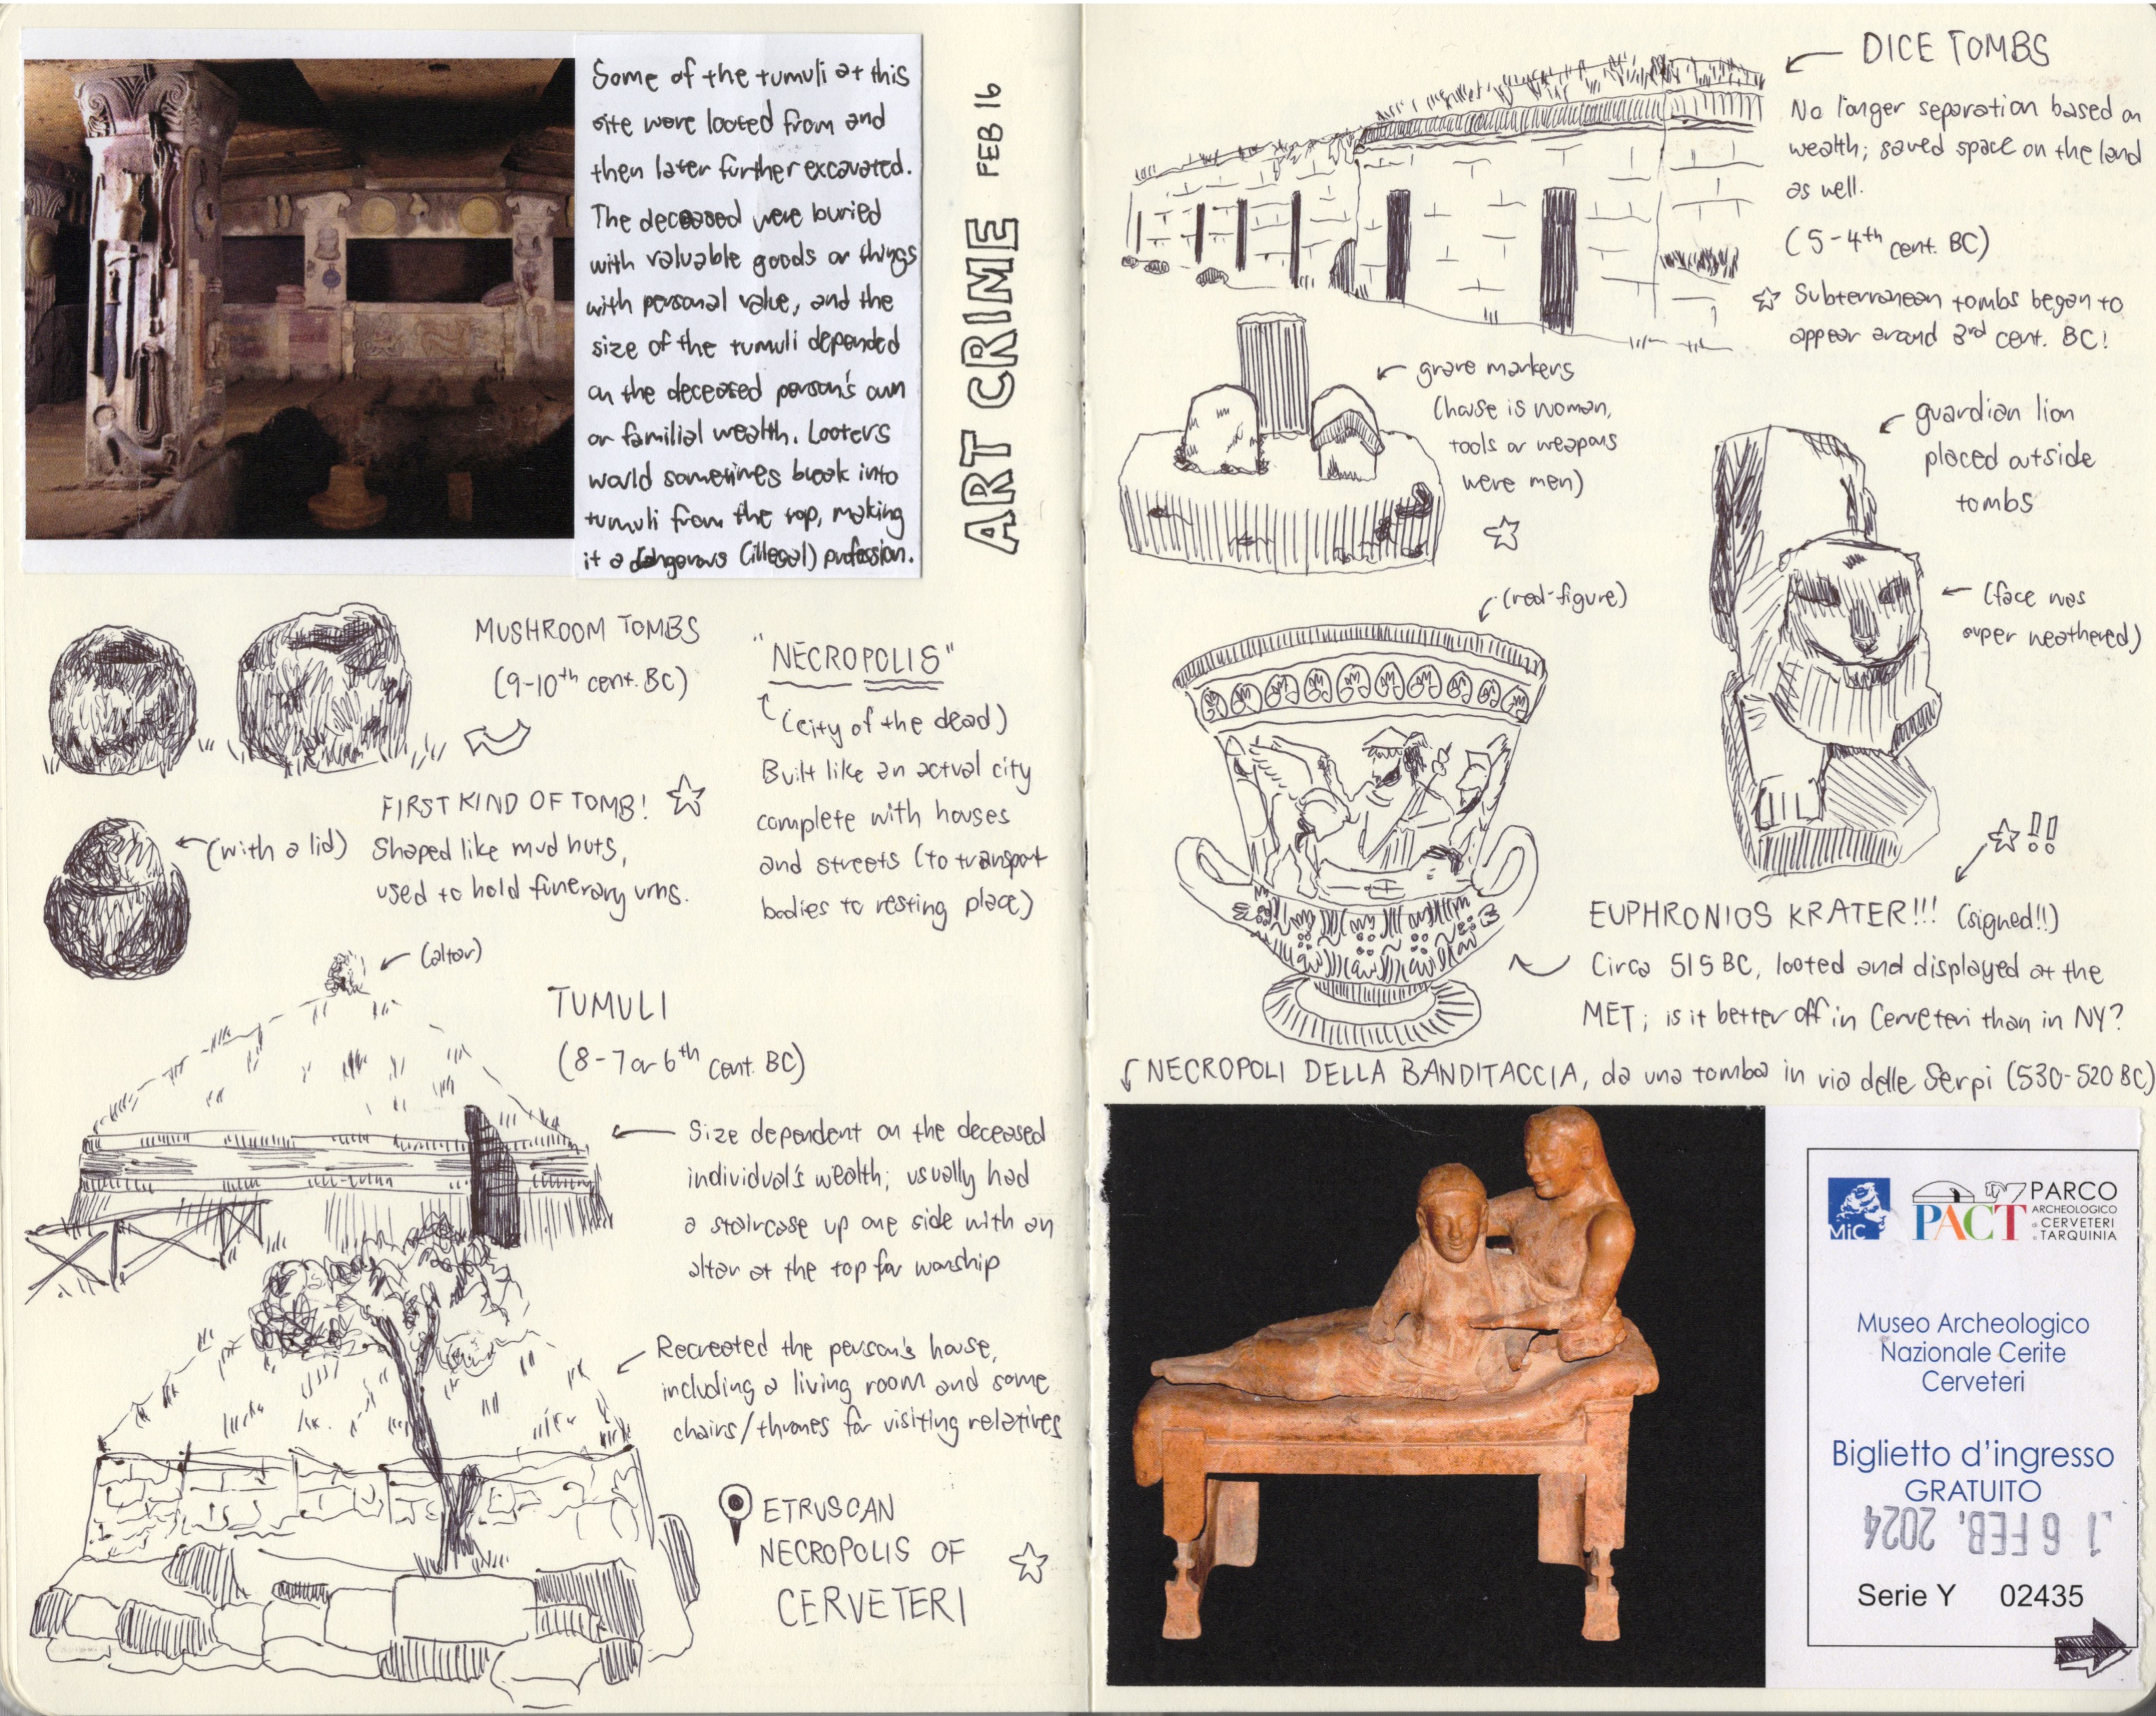 Some of the tumuli at this
site were looted from and
then later further excavated.
The deceased were buried
with valuable goods or things
with personal value, and the
size of the tumuli depended
on the deceased person's own
or familial wealth. Looters
would sometimes break into
tumuli from the top, making
it a dangerous (illegal) profession.
ART CRIME FEB 16
MUSHROOM TOMBS
(9-10th cent. BC)
FIRST KIND OF TOMB!
(with a lid)
Shaped like mud huts,
used to hold funerary urns.
"NECROPOLIS"
(city of the dead)
Built like an actual city
complete with houses
and streets (to transport
bodies to resting place)
(altar)
TUMULI
(8-7 or 6th cent. BC)
Size dependent on the deceased
individual's wealth; usually had
a staircase up one side with an
altar at the top for worship
Recreated the person's house,
including a living room and some
chairs/thrones for visiting relatives
ETRUSCAN
NECROPOLIS OF
CERVETERI
DICE TOMBS
No longer separation based on
wealth; saved space on the land
as well.
(5-4th cent. BC)
Subterranean tombs began to
appear around 3rd cent. BC!
grave markers
(house is woman,
tools or weapons
were men)
guardian lion
placed outside
tombs
(face was
super weathered)
(red-figure)
!!
EUPHRONIOS KRATER!!! (signed!!)
Circa 515 BC, looted and displayed at the
MET; is it better off in Cerveteri than in NY?
NECROPOLI DELLA BANDITACCIA, da una tomba in via delle Serpi (530-520 BC)
MiC
PACT
PARCO
ARCHEOLOGICO
di CERVETERI
e TARQUINIA
Museo Archeologico
Nazionale Cerite
Cerveteri
Biglietto d'ingresso
GRATUITO
16 FEB. 2024
Serie Y 02435